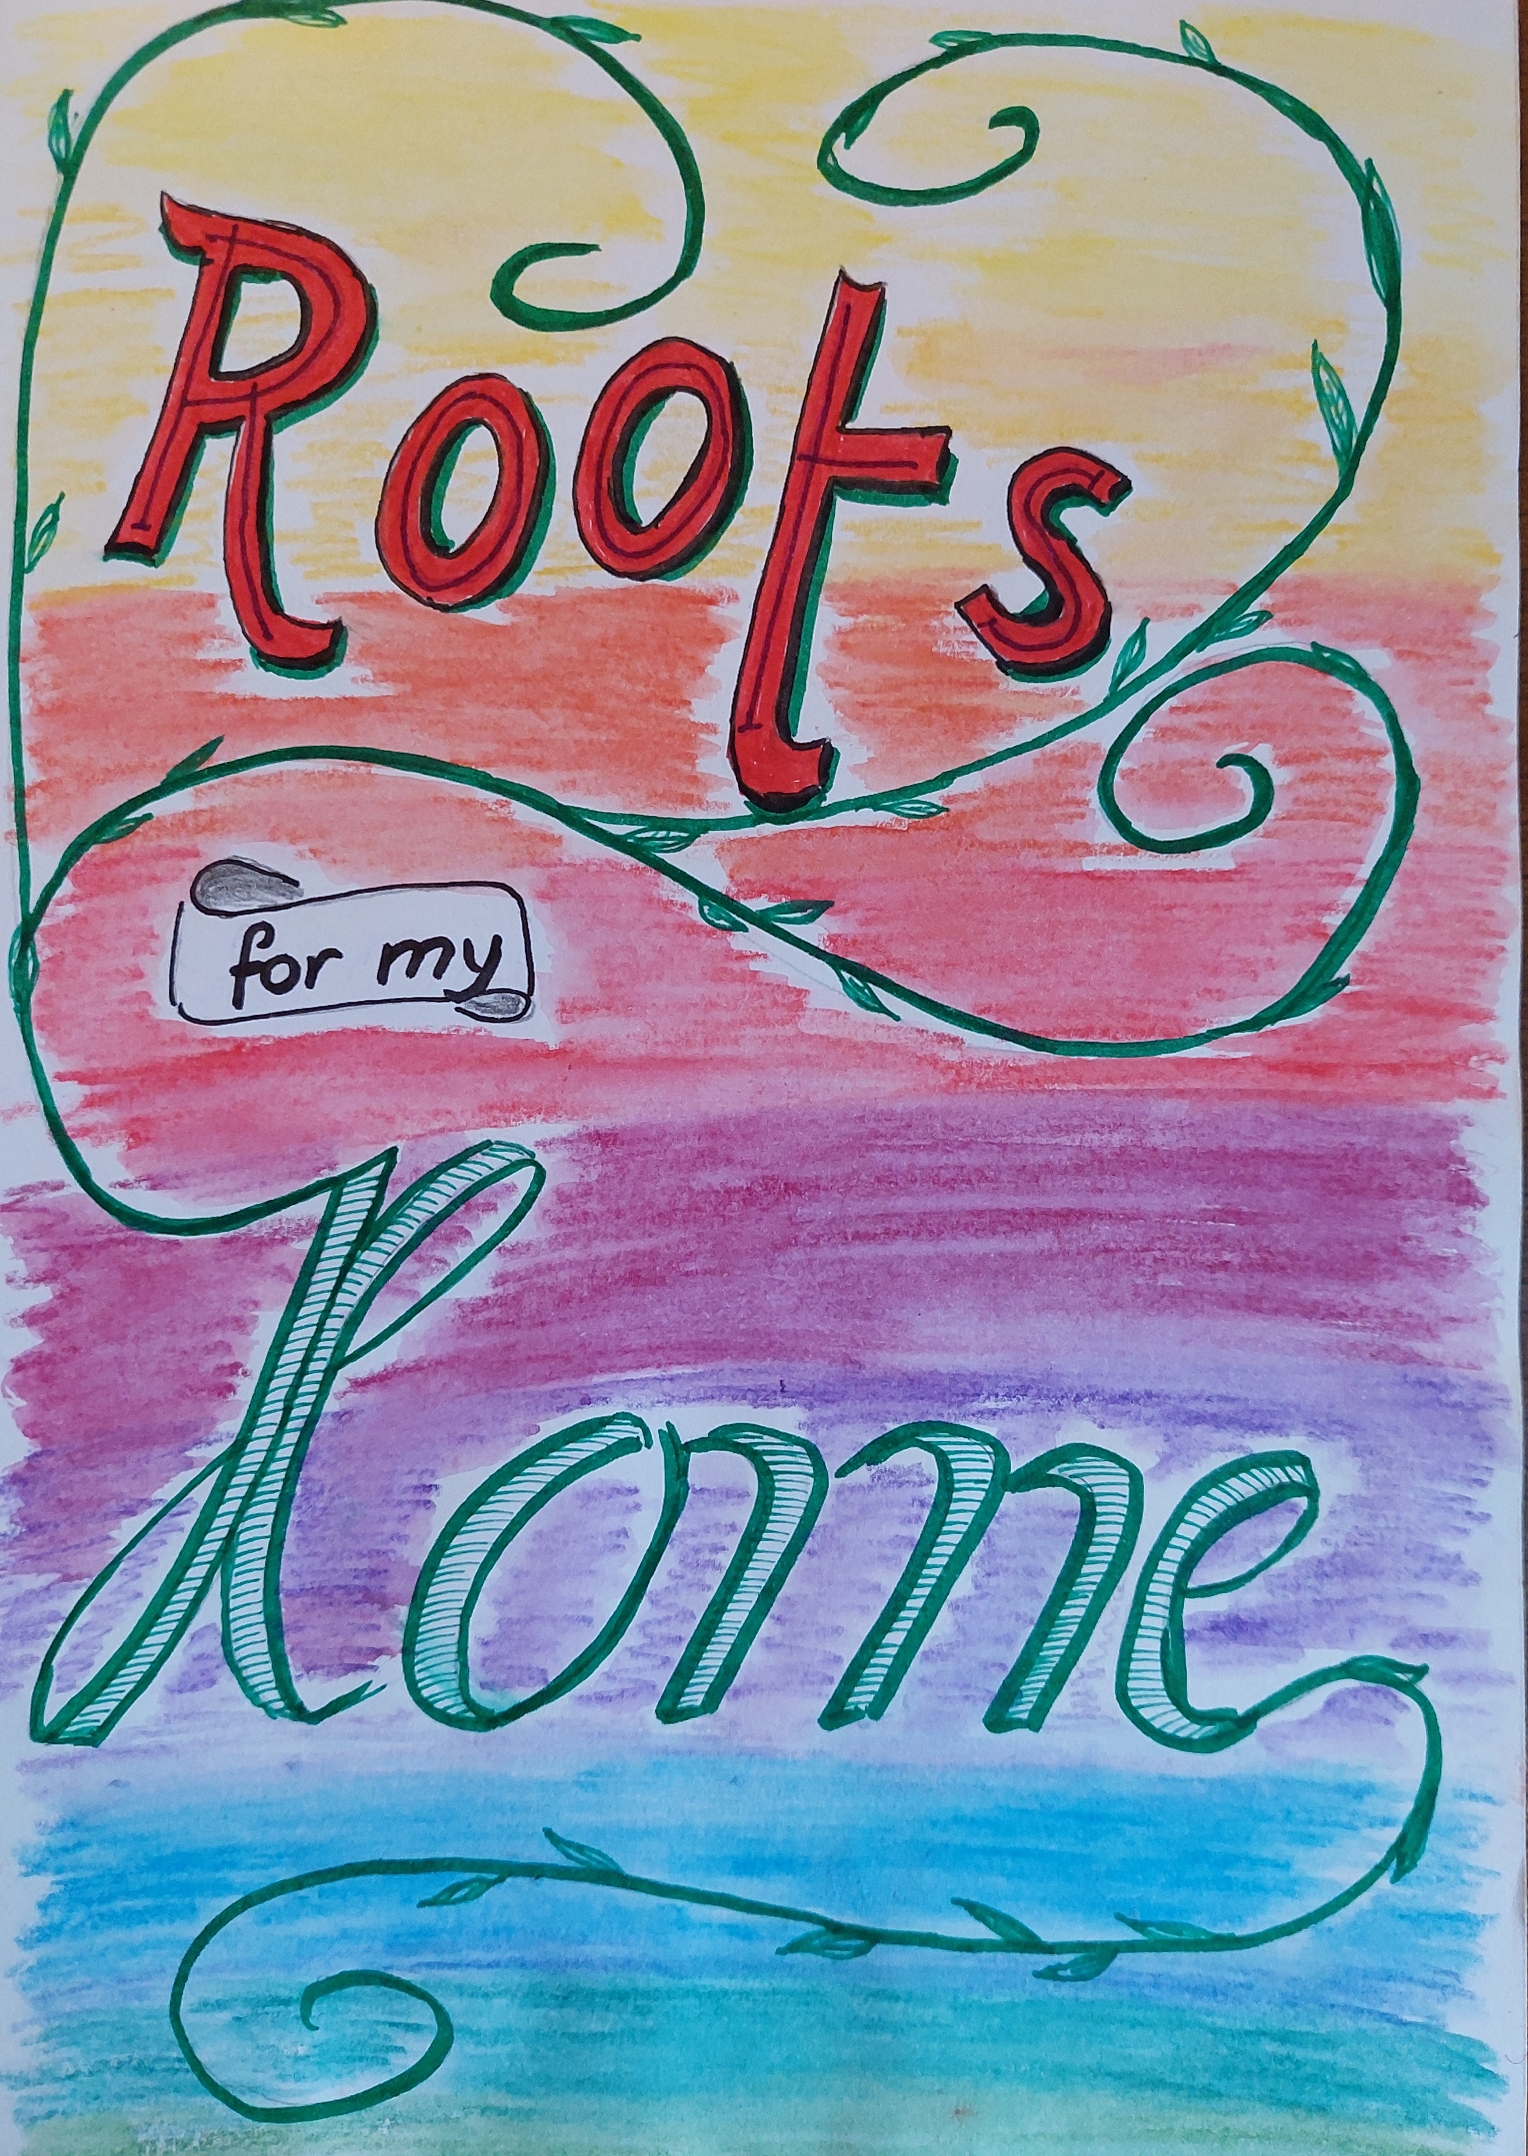 Roots
for my
Home